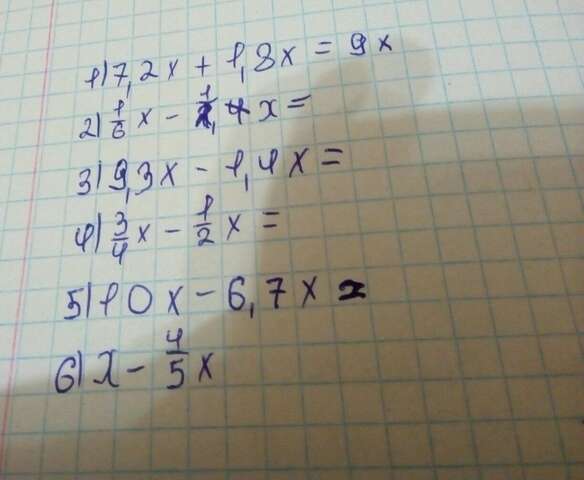 1) 7,2x + 1,8x = 9x
2) 1/6 x - 1,4x =
3) 9,3x - 1,4x =
4) 3/4 x - 1/2 x =
5) 10x - 6,7x =
6) x - 4/5 x